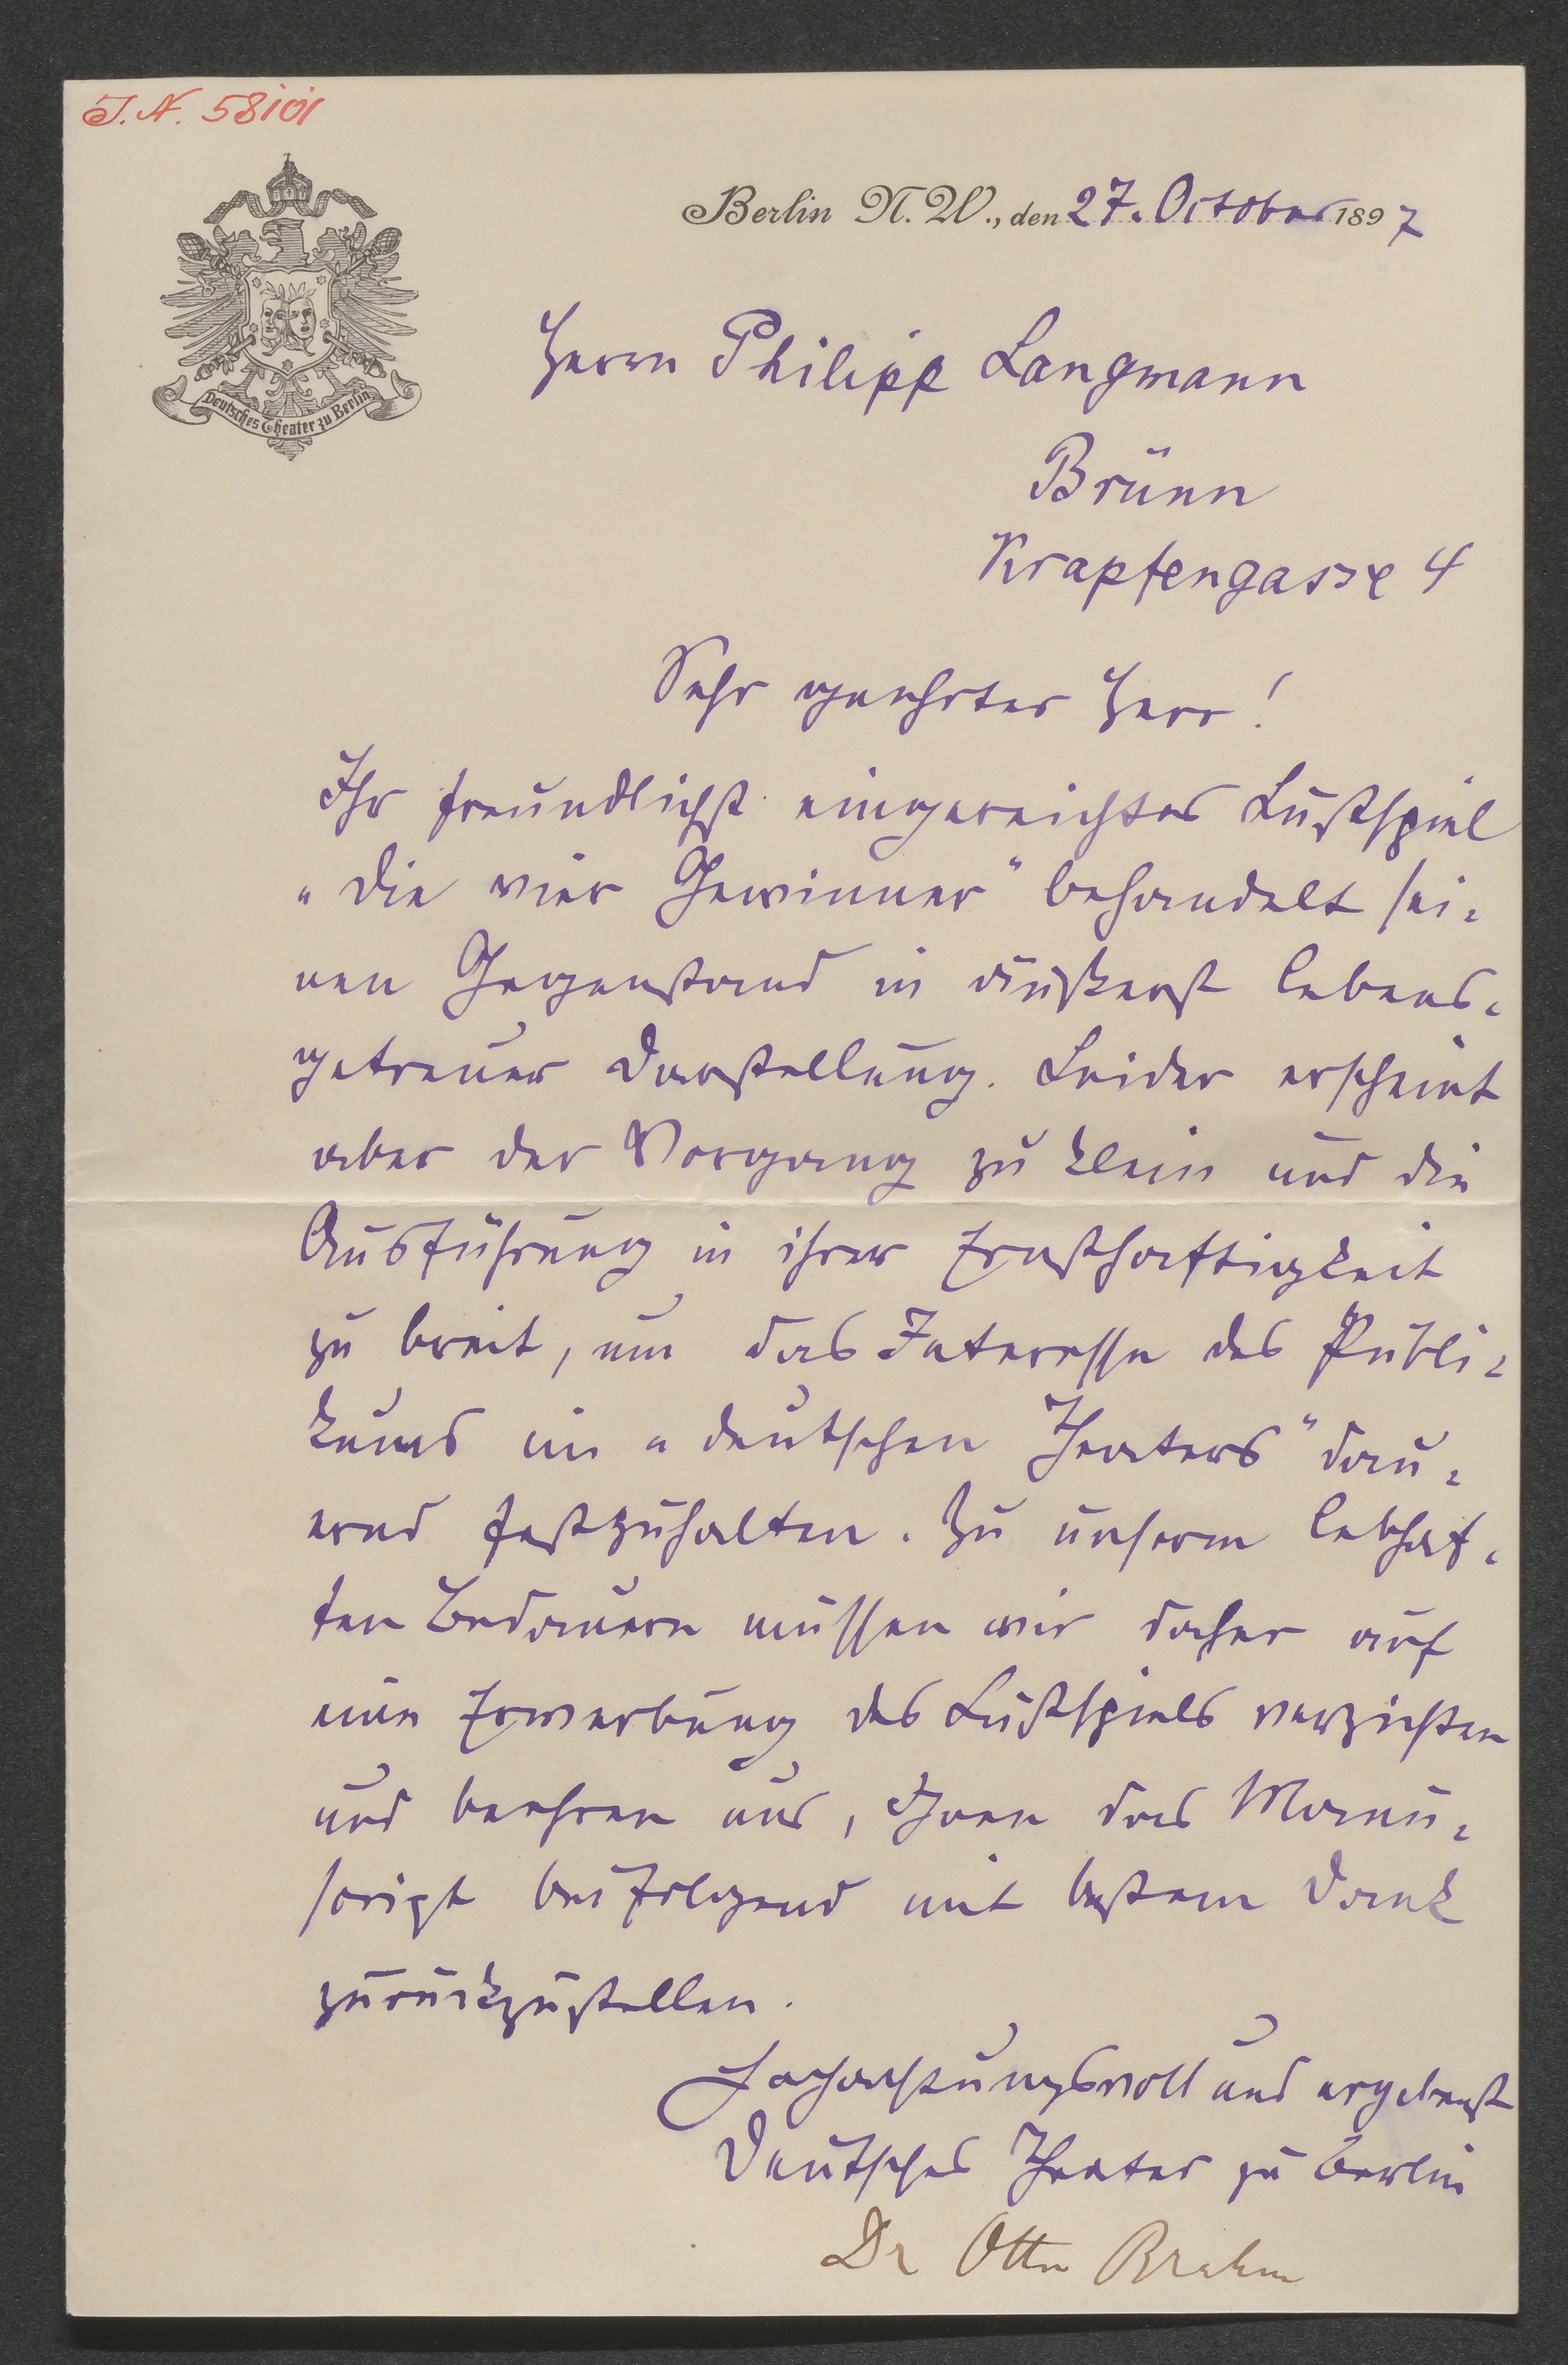 J. N. 58101
Deutsches Theater zu Berlin
Berlin N. W., den 27. October 1897
Herrn Philipp Langmann
Brünn
Krapfengasse 4
Sehr geehrter Herr!
Ihr freundlichst eingereichtes Lustspiel
„Die vier Gewinner" behandelt sei-
nen Gegenstand in äußerst lebens-
getreuer Darstellung. Leider erscheint
aber der Vorgang zu klein und die
Ausführung in ihrer Ernsthaftigkeit
zu breit, um das Interesse des Publi-
kums im „Deutschen Theaters" dau-
ernd festzuhalten. Zu unserm lebhaf-
ten Bedauern müssen wir daher auf
eine Erwerbung des Lustspiels verzichten
und beehren uns, Ihnen das Manu-
script beifolgend mit bestem Dank
zurückzustellen.
Hochachtungsvoll und ergebenst
Deutsches Theater zu Berlin
Dr Otto Brahm